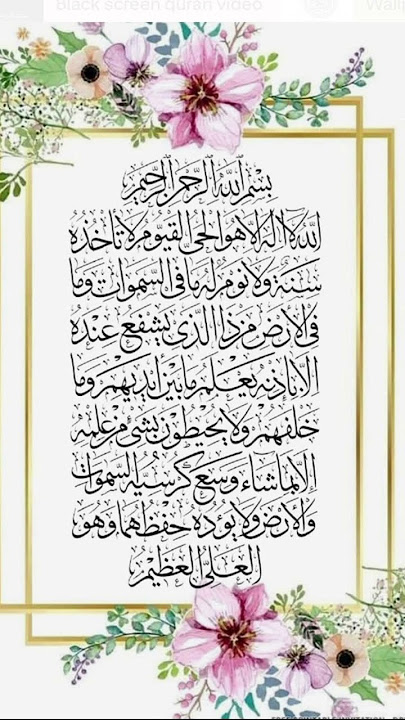 Black screen quran video
بِسْمِ ٱللَّهِ ٱلرَّحْمٰنِ ٱلرَّحِيمِ
اللّٰهُ لَا إِلٰهَ إِلَّا هُوَ الْحَيُّ الْقَيُّومُ لَا تَأْخُذُهُ
سِنَةٌ وَلَا نَوْمٌ لَهُ مَا فِي السَّمٰوَاتِ وَمَا
فِي الْأَرْضِ مَنْ ذَا الَّذِي يَشْفَعُ عِنْدَهُ
إِلَّا بِإِذْنِهِ يَعْلَمُ مَا بَيْنَ أَيْدِيهِمْ وَمَا
خَلْفَهُمْ وَلَا يُحِيطُونَ بِشَيْءٍ مِنْ عِلْمِهِ
إِلَّا بِمَا شَاءَ وَسِعَ كُرْسِيُّهُ السَّمٰوَاتِ
وَالْأَرْضَ وَلَا يَؤُدُهُ حِفْظُهُمَا وَهُوَ
الْعَلِيُّ الْعَظِيمُ